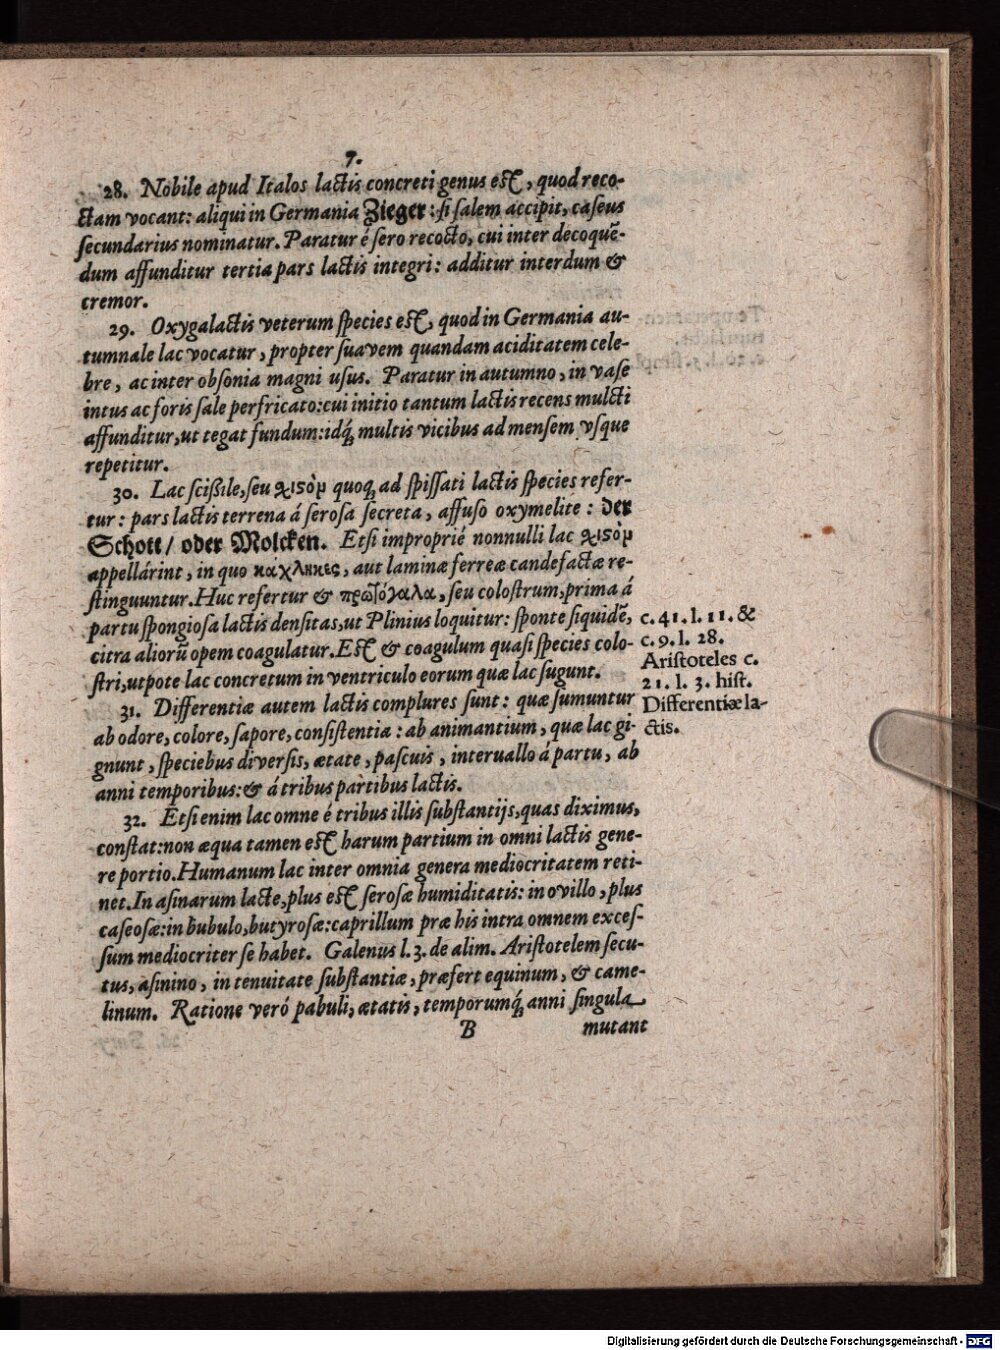 7.
28. Nobile apud Italos lactis concreti genus est, quod reco-
ctam vocant: aliqui in Germania Zieger: si salem accipit, caseus
secundarius nominatur. Paratur é sero recocto, cui inter decoquē-
dum affunditur tertia pars lactis integri: additur interdum &
cremor.
29. Oxygalactis veterum species est, quod in Germania au-
tumnale lac vocatur, propter suavem quandam aciditatem cele-
bre, ac inter obsonia magni usus. Paratur in autumno, in vase
intus ac foris sale perfricato: cui initio tantum lactis recens mulcti
affunditur, ut tegat fundum: idq́; multis vicibus ad mensem vsque
repetitur.
30. Lac scißile, seu χιϛὸν quoq; ad spissati lactis species refer-
tur: pars lactis terrena á serosa secreta, affuso oxymelite: der
Schott/ oder Molcken. Etsi improprié nonnulli lac χιϛὸν
appellárint, in quo κάχληκες, aut laminæ ferreæ candefactæ re-
stinguuntur. Huc refertur & πρωτόγαλα, seu colostrum, prima á
partu spongiosa lactis densitas, ut Plinius loquitur: sponte siquidē,
citra aliorū opem coagulatur. Est & coagulum quasi species colo-
stri, utpote lac concretum in ventriculo eorum quæ lac sugunt.
31. Differentiæ autem lactis complures sunt: quæ sumuntur
ab odore, colore, sapore, consistentia: ab animantium, quæ lac gi-
gnunt, speciebus diversis, ætate, pascuis, interuallo á partu, ab
anni temporibus: & á tribus partibus lactis.
32. Etsi enim lac omne é tribus illis substantijs, quas diximus,
constat: non æqua tamen est harum partium in omni lactis gene-
re portio. Humanum lac inter omnia genera mediocritatem reti-
net. In asinarum lacte, plus est serosæ humiditatis: in ovillo, plus
caseosæ: in bubulo, butyrosæ: caprillum præ his intra omnem exces-
sum mediocriter se habet. Galenus l. 3. de alim. Aristotelem secu-
tus, asinino, in tenuitate substantiæ, præfert equinum, & came-
linum. Ratione veró pabuli, ætatis, temporumq́; anni singula
B mutant
c. 41. l. 11. &
c. 9. l. 28.
Aristoteles c.
21. l. 3. hist.
Differentiæ la-
ctis.
Digitalisierung gefördert durch die Deutsche Forschungsgemeinschaft - DFG